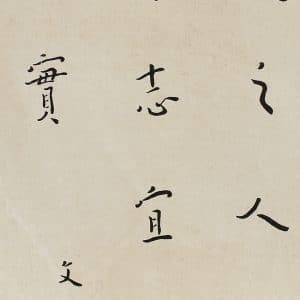 之人
志宜
實
文